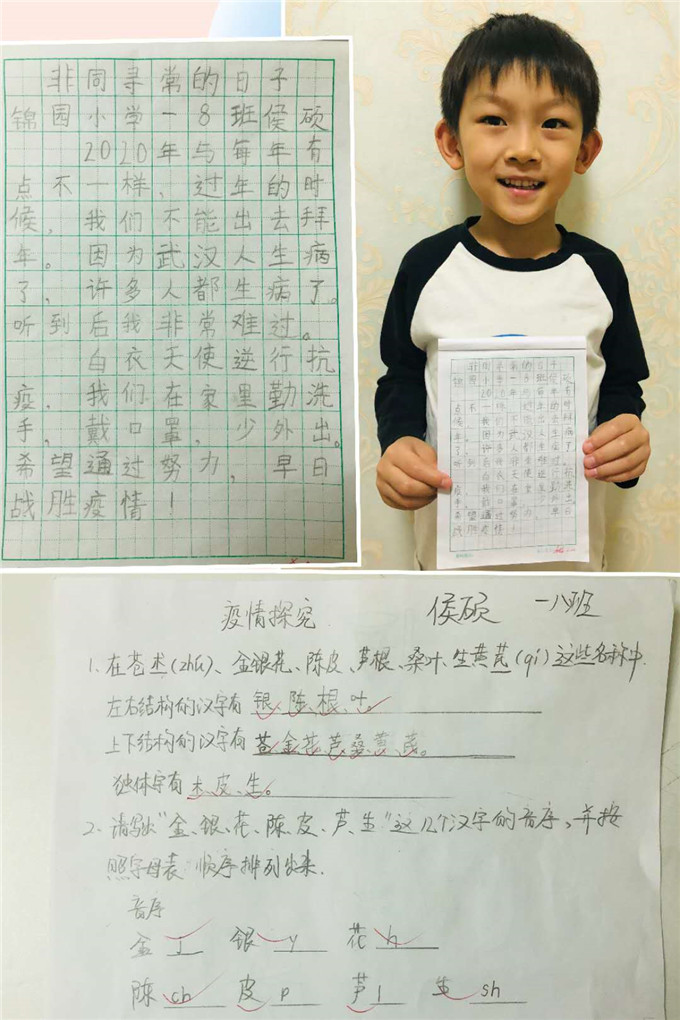 非同寻常的日子
锦园小学一8班侯硕
2020年与每年有
点不一样，过年的时
候，我们不能出去拜
年。因为武汉人生病
了，许多人都生病了。
听到后我非常难过。
白衣天使逆行抗
疫，我们在家里勤洗
手，戴口罩，少外出。
希望通过努力，早日
战胜疫情！
疫情探究 侯硕 一八班
1、在苍术(zhú)、金银花、陈皮、芦根、桑叶、生黄芪(qí)这些名称中
左右结构的汉字有 银、陈、根、叶。
上下结构的汉字有 苍金花芦桑黄芪。
独体字有 术、皮、生。
2、请写出"金、银、花、陈、皮、芦、生"这几个汉字的音序，并按
照字母表顺序排列出来.
音序
金 J 银 y 花 h
陈 ch 皮 p 芦 l 生 sh